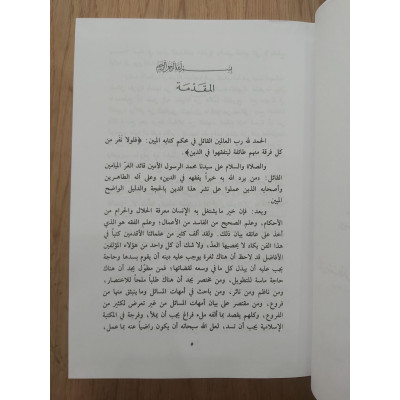 بسم الله الرحمن الرحيم
المقدمة
الحمد لله رب العالمين القائل في محكم كتابه المبين: ﴿فلولا نفر من
كل فرقة منهم طائفة ليتفقهوا في الدين﴾.
والصلاة والسلام على سيدنا محمد الرسول الأمين قائد الغر الميامين
القائل: «من يرد الله به خيراً يفقهه في الدين»، وعلى آله الطاهرين
وأصحابه الذين عملوا على نشر هذا الدين بالحجة والدليل الواضح
المبين.
وبعد: فإن خير ما يشتغل به الإنسان معرفة الحلال والحرام من
الأحكام، وعلم الصحيح من الفاسد من الأعمال؛ وعلم الفقه هو الذي
أخذ على عاتقه بيان ذلك. ولقد ألف كثير من علمائنا الأقدمين كتباً في
هذا الفن يكاد لا يحصيها العدّ، ولا شك أن كل واحد من هؤلاء المؤلفين
الأفاضل قد لاحظ أن هناك ثغرة يوجب عليه دينه أن يقوم بسدها وحاجة
يجب عليه أن يبذل كل ما في وسعه لقضائها؛ فمن مطوّل يجد أن هناك
حاجة ماسة للتطويل، ومن مختصر يجد أن هناك طلباً ملحاً للاختصار،
ومن ناظم ومن ناثر، ومن باحث في أمهات المسائل وما ينبثق منها من
فروع، ومن مقتصر على بيان أمهات المسائل من غير تعرض لكثير من
الفروع، وكلهم يقصد بما ألفه ملء فراغ يجب أن يملأ، وفرجة في المكتبة
الإسلامية يجب أن تسد، لعل الله سبحانه أن يكون راضياً عنه بما عمل،
٥